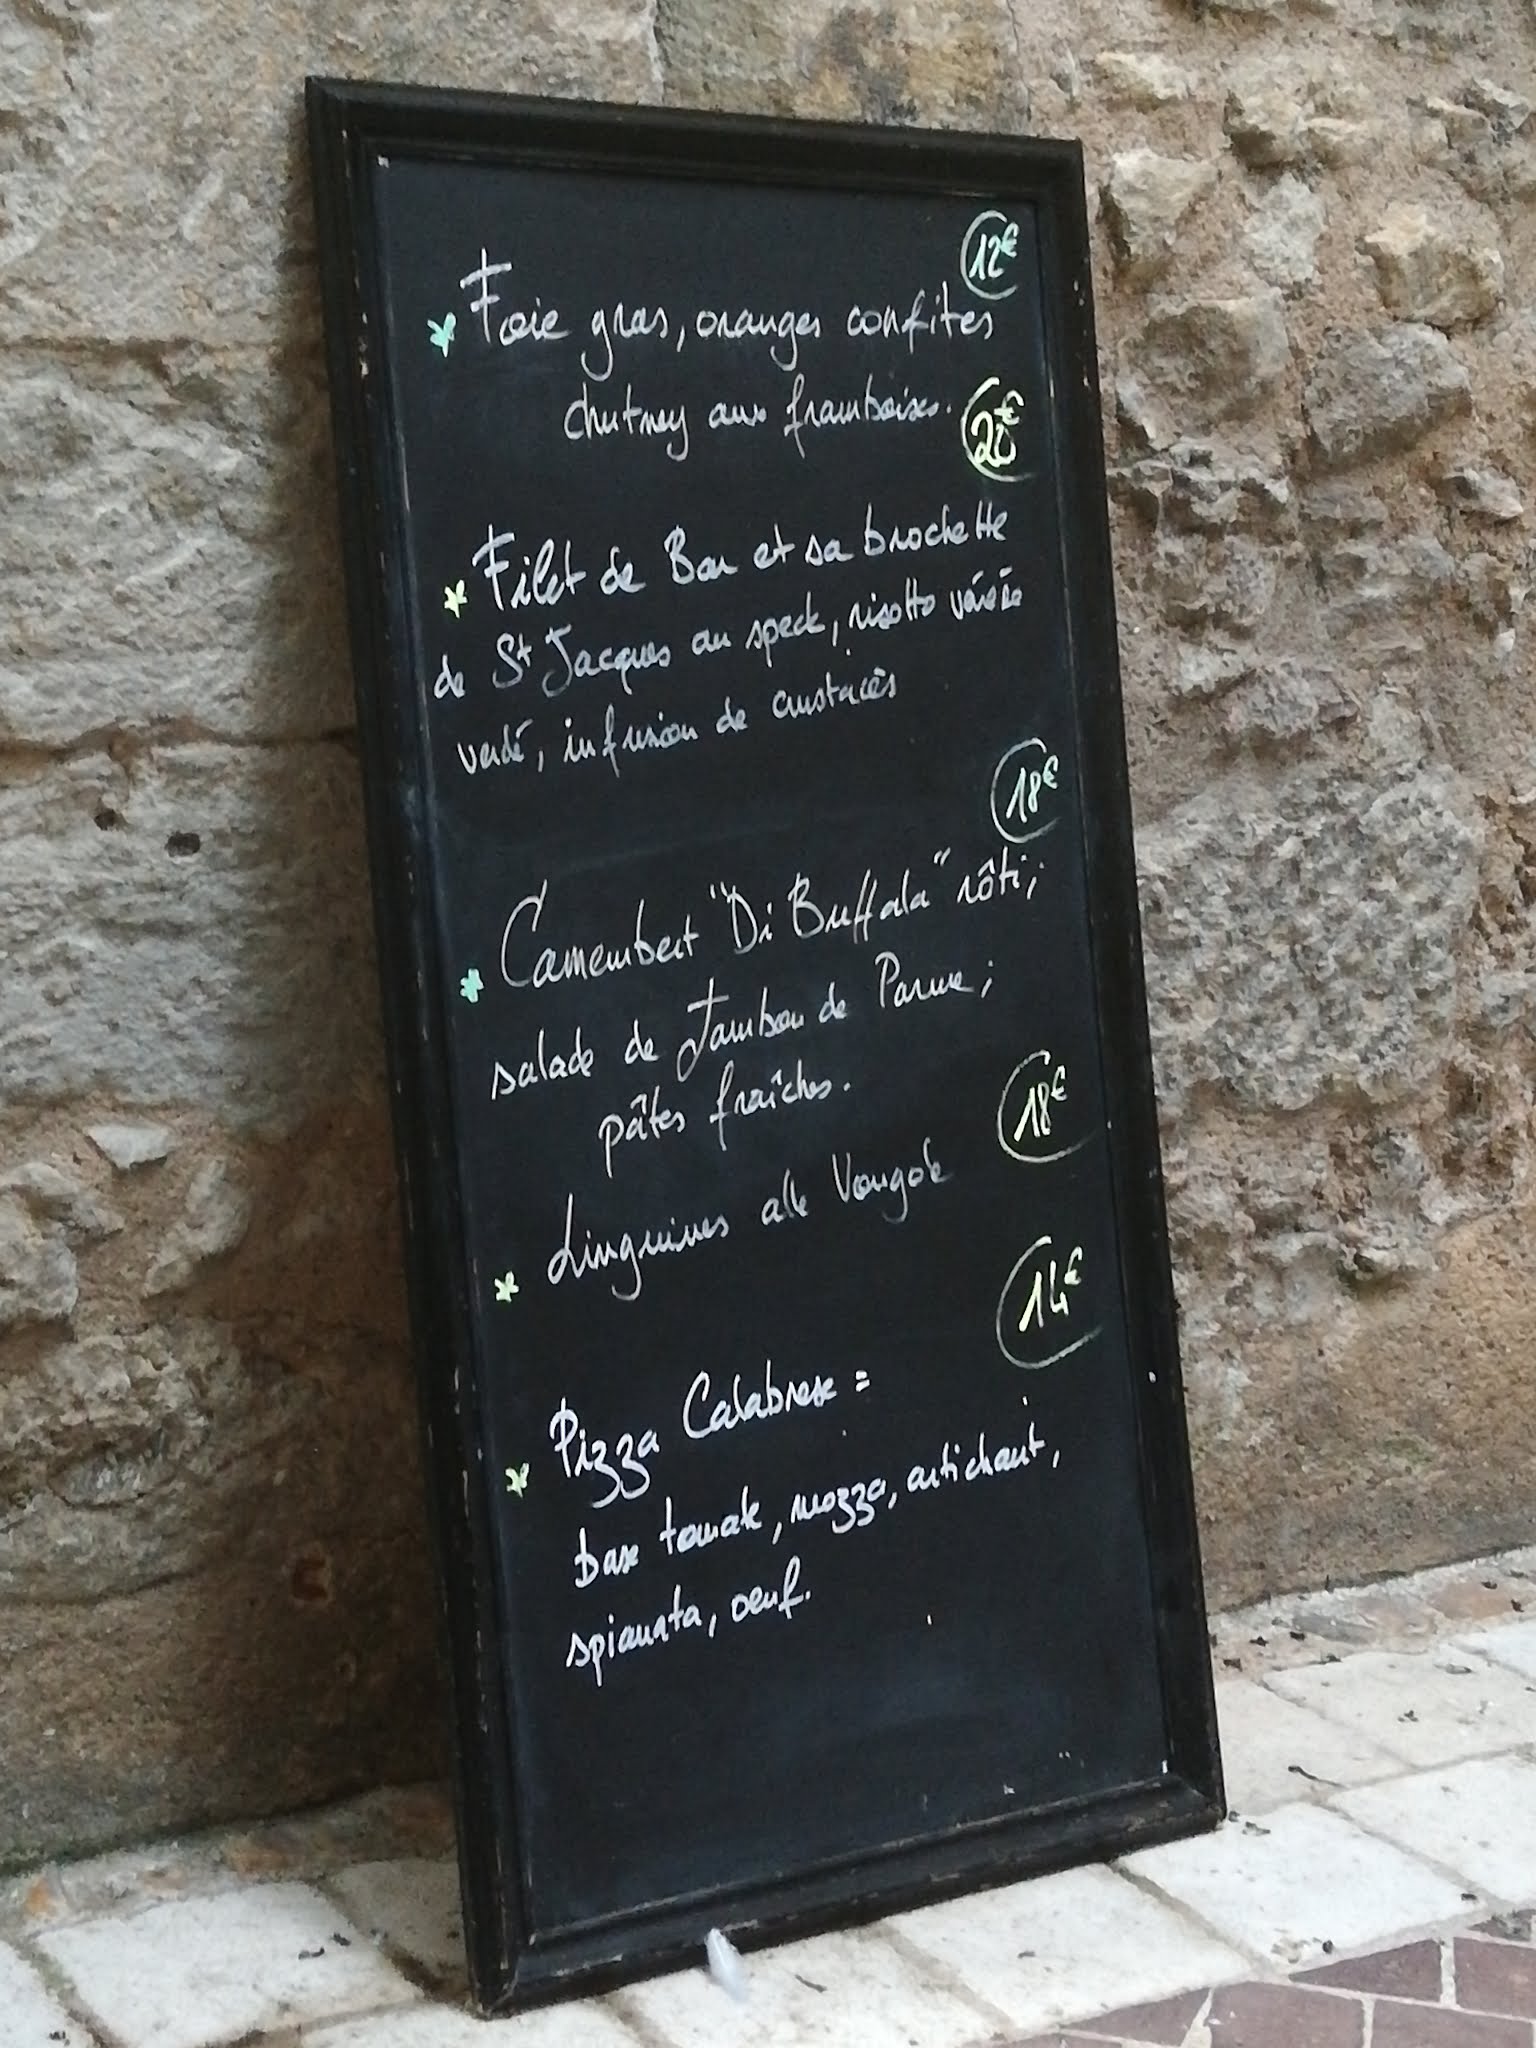 12€
Foie gras, oranges confites
chutney aux framboises.
20€
Filet de Bar et sa brochette
de St Jacques au speck, risotto
verde, infusion de crustacés
18€
Camembert "Di Buffala" rôti;
salade de Jambon de Parme;
pâtes fraîches.
18€
Linguines alle Vongole
14€
Pizza Calabrese =
base tomate, mozza, artichaut,
spianata, oeuf.